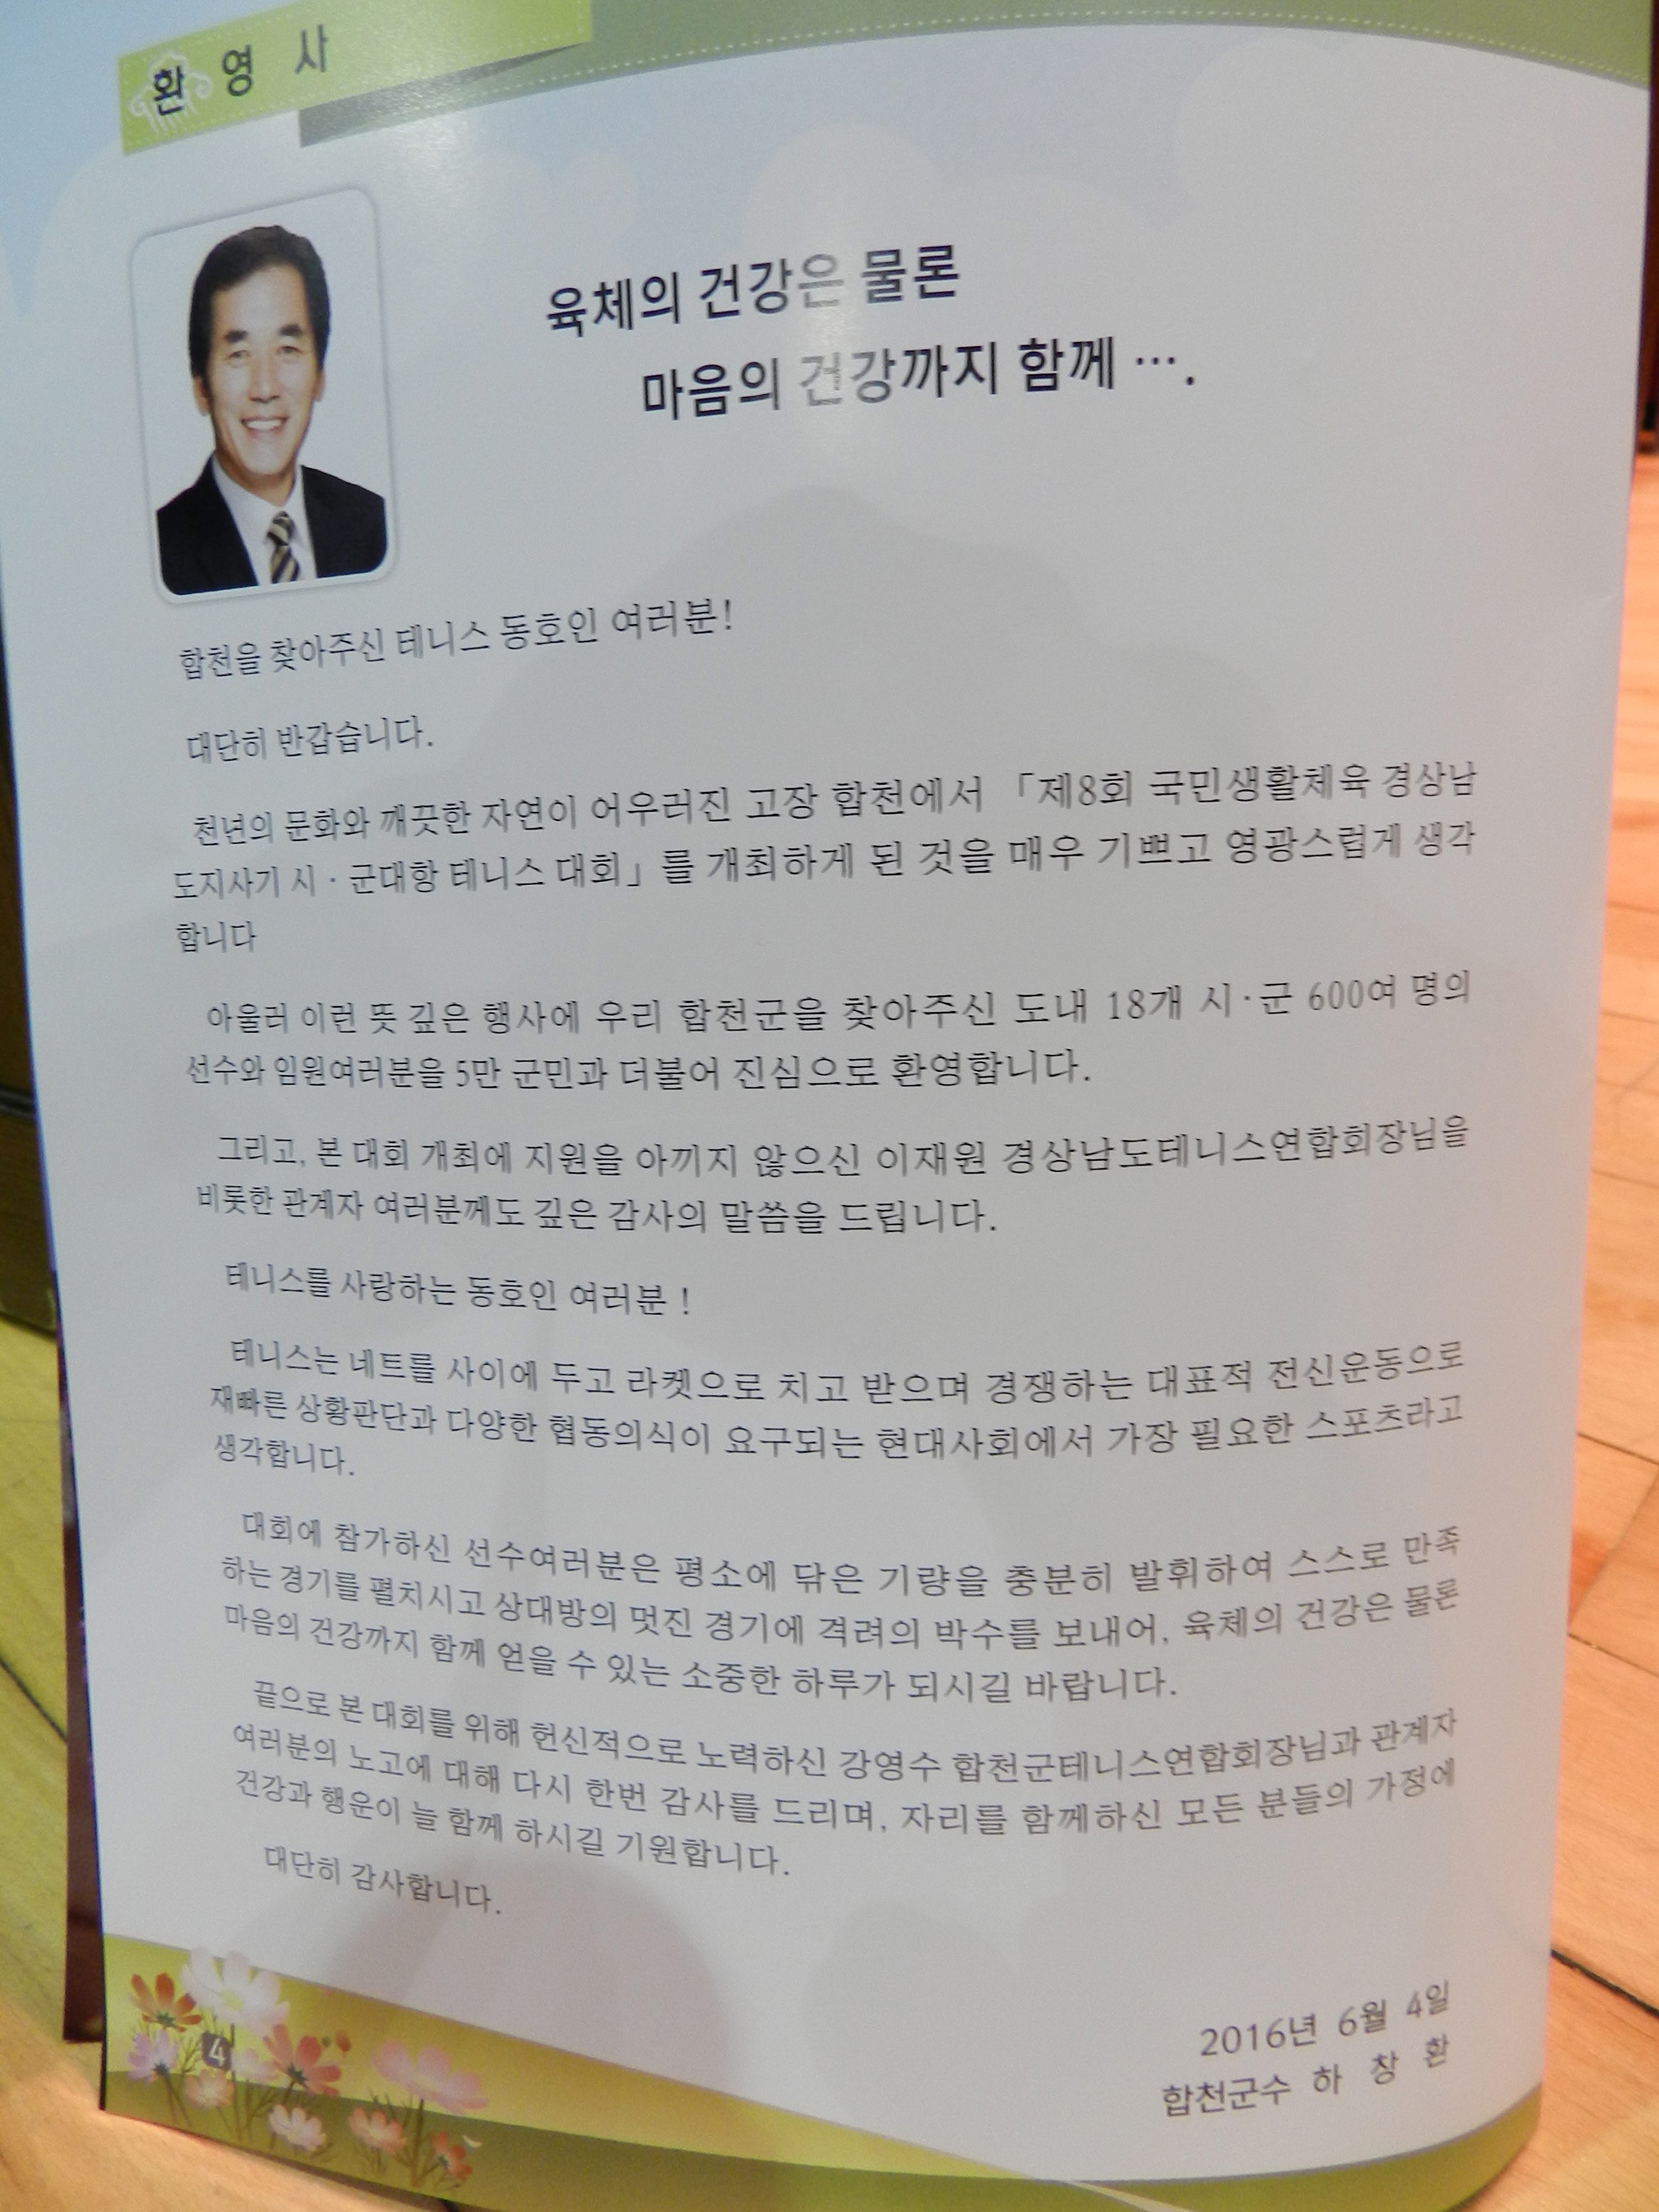 환 영 사
육체의 건강은 물론
마음의 건강까지 함께 ….
합천을 찾아주신 테니스 동호인 여러분!
대단히 반갑습니다.
천년의 문화와 깨끗한 자연이 어우러진 고장 합천에서 「제8회 국민생활체육 경상남
도지사기 시·군대항 테니스 대회」를 개최하게 된 것을 매우 기쁘고 영광스럽게 생각
합니다
아울러 이런 뜻 깊은 행사에 우리 합천군을 찾아주신 도내 18개 시·군 600여 명의
선수와 임원여러분을 5만 군민과 더불어 진심으로 환영합니다.
그리고, 본 대회 개최에 지원을 아끼지 않으신 이재원 경상남도테니스연합회장님을
비롯한 관계자 여러분께도 깊은 감사의 말씀을 드립니다.
테니스를 사랑하는 동호인 여러분 !
테니스는 네트를 사이에 두고 라켓으로 치고 받으며 경쟁하는 대표적 전신운동으로
재빠른 상황판단과 다양한 협동의식이 요구되는 현대사회에서 가장 필요한 스포츠라고
생각합니다.
대회에 참가하신 선수여러분은 평소에 닦은 기량을 충분히 발휘하여 스스로 만족
하는 경기를 펼치시고 상대방의 멋진 경기에 격려의 박수를 보내어, 육체의 건강은 물론
마음의 건강까지 함께 얻을 수 있는 소중한 하루가 되시길 바랍니다.
끝으로 본 대회를 위해 헌신적으로 노력하신 강영수 합천군테니스연합회장님과 관계자
여러분의 노고에 대해 다시 한번 감사를 드리며, 자리를 함께하신 모든 분들의 가정에
건강과 행운이 늘 함께 하시길 기원합니다.
대단히 감사합니다.
2016년 6월 4일
합천군수 하 창 환
4